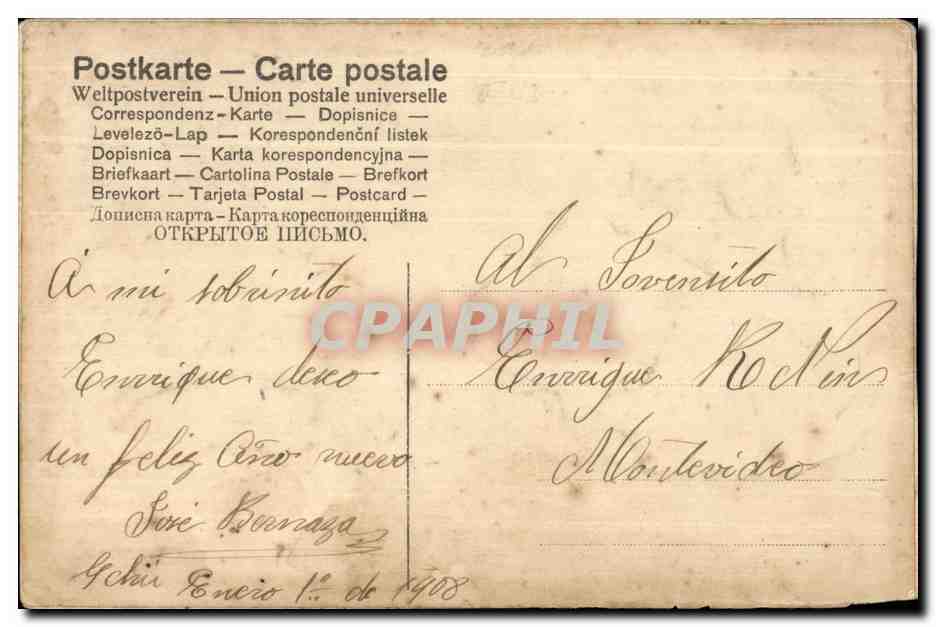 Postkarte — Carte postale
Weltpostverein — Union postale universelle
Correspondenz-Karte — Dopisnice —
Levelező-Lap — Korespondenční listek
Dopisnica — Karta korespondencyjna —
Briefkaart — Cartolina Postale — Brefkort
Brevkort — Tarjeta Postal — Postcard —
Дописна карта – Карта кореспонденційна
ОТКРЫТОЕ ПИСЬМО.
A mi sobrinito
Enrique deseo
un feliz Año nuevo
José Bernaza
Enero 1º de 1908
Al Jovensito
Enrique R
Montevideo
CPAPHIL